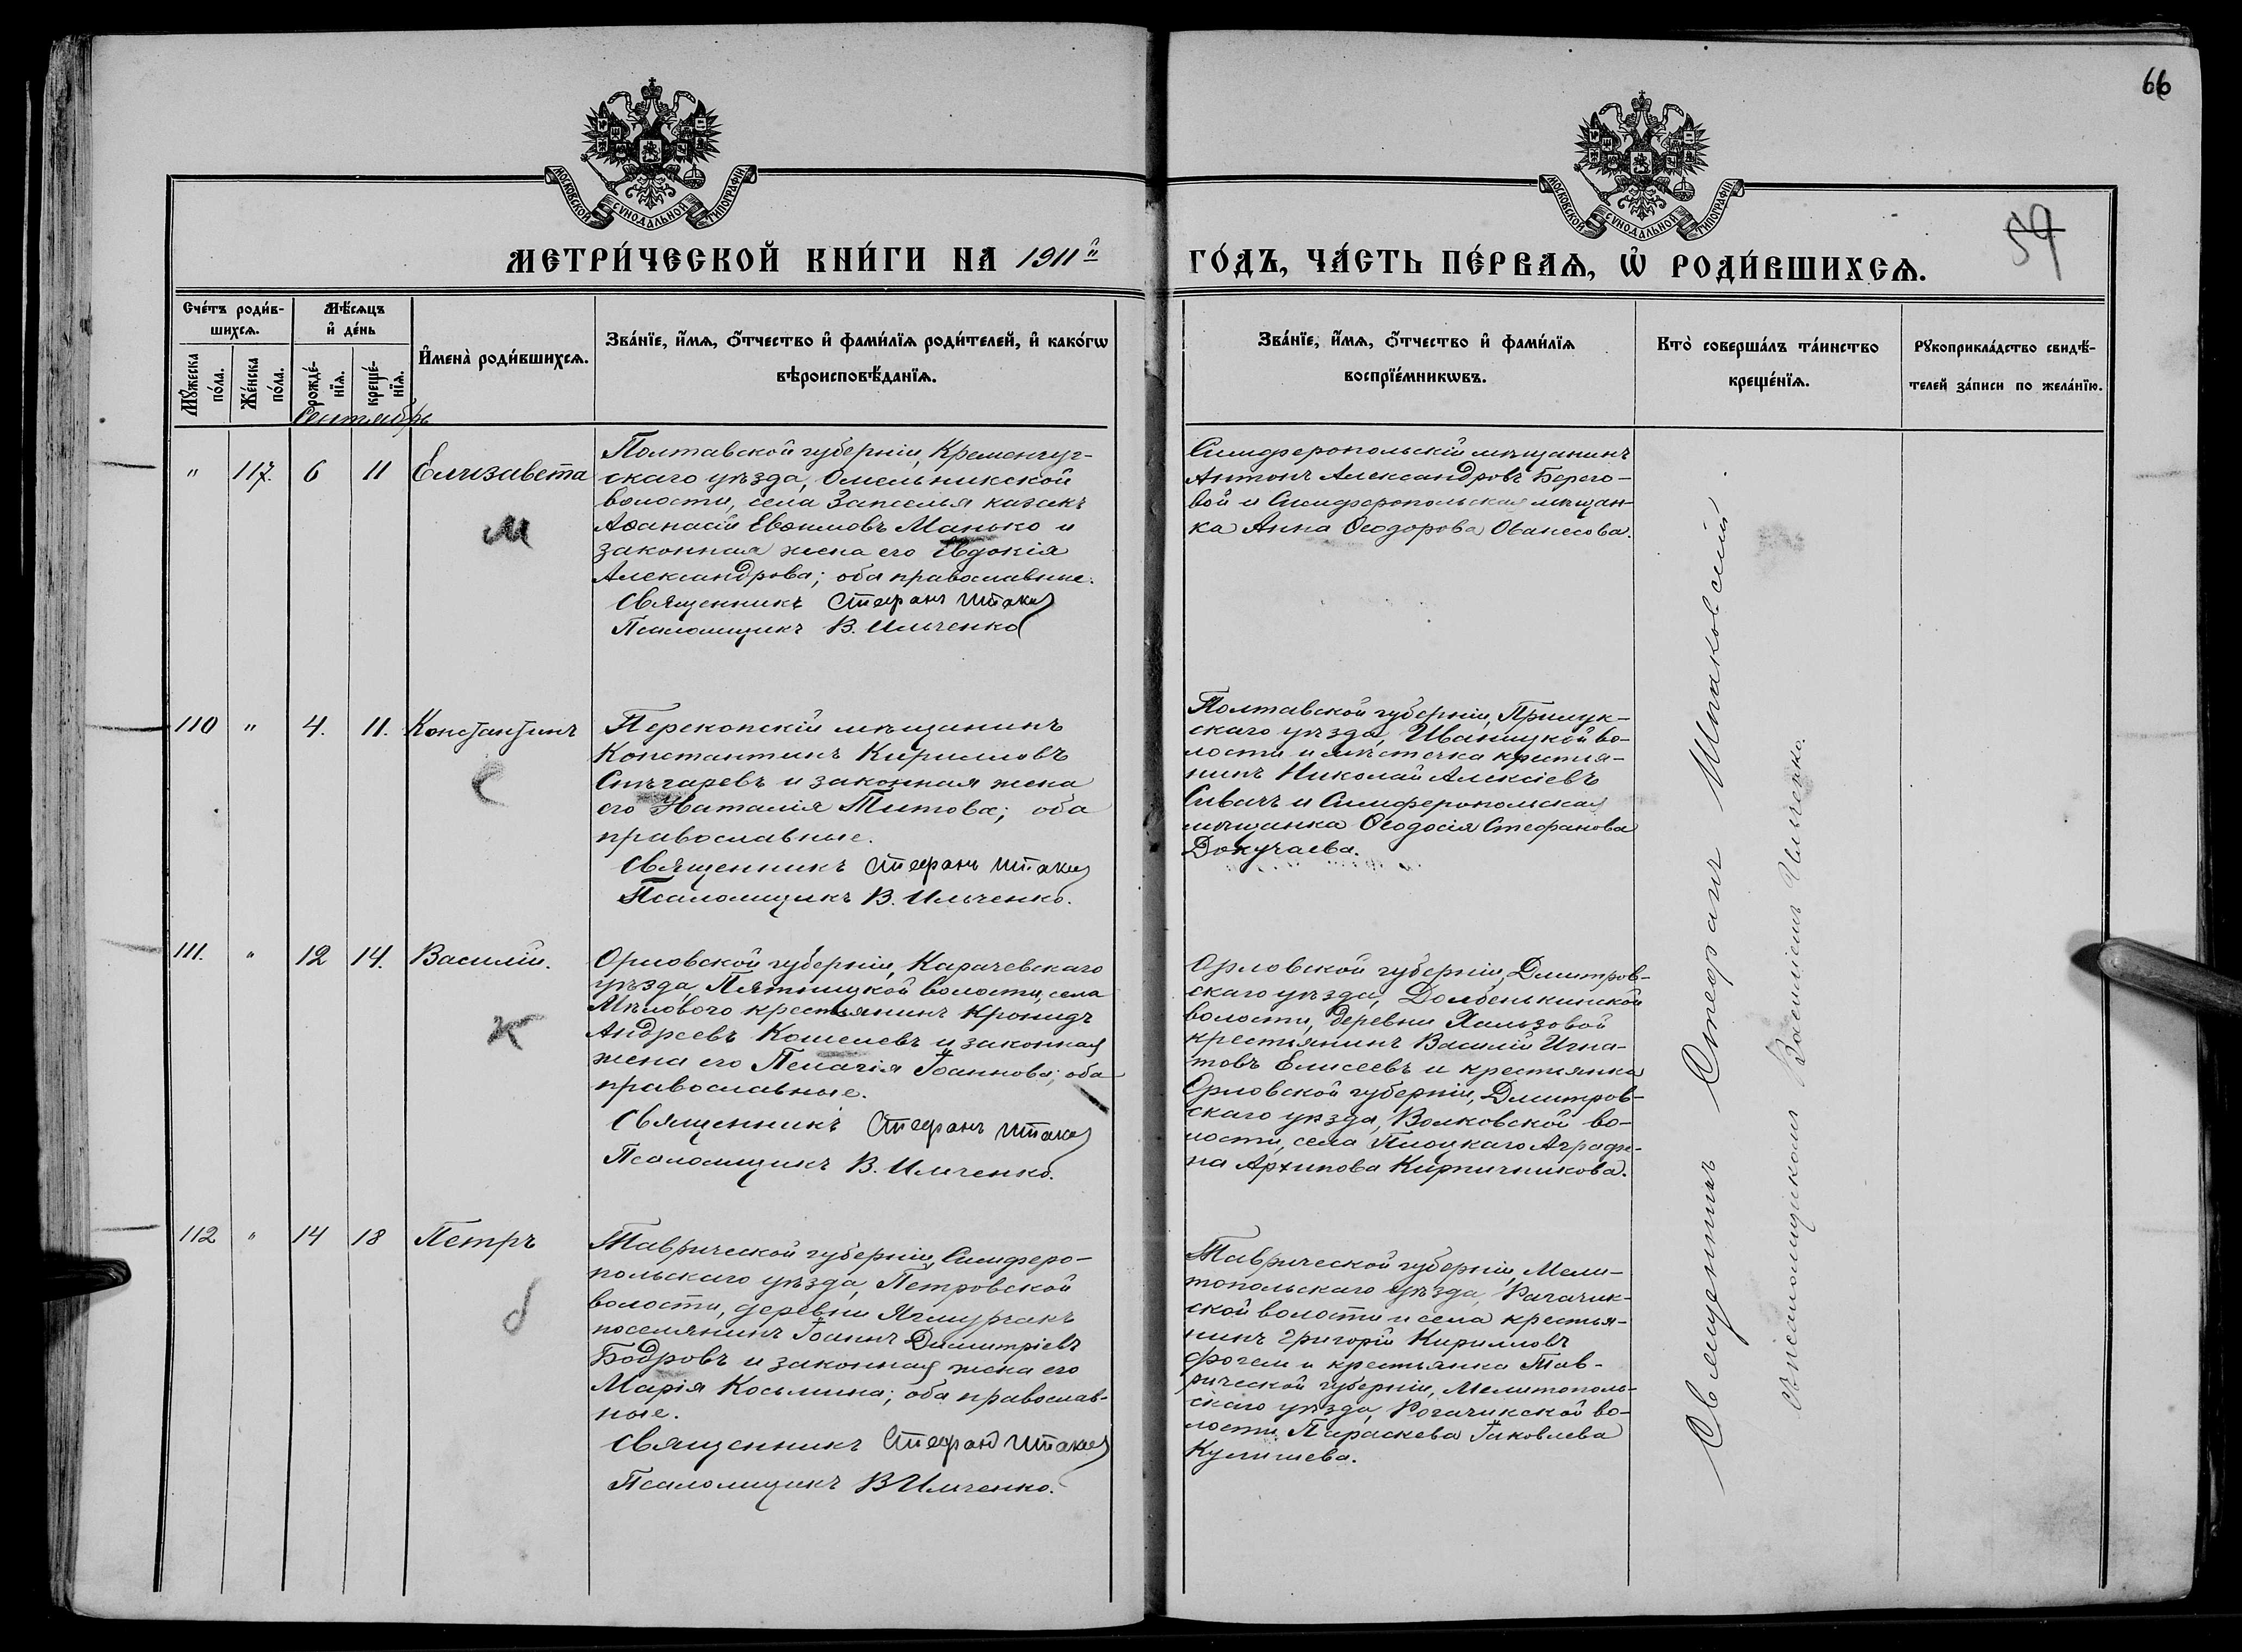 66
59
МОСКОВСКОЙ СѴНОДАЛЬНОЙ ТИПОГРАФІИ
МОСКОВСКОЙ СѴНОДАЛЬНОЙ ТИПОГРАФІИ
МЕТРИ́ЧЕСКОЙ КНИ́ГИ НА 1911й
ГО́ДЪ, ЧА́СТЬ ПЕ́РВАѦ, Ѡ҆ РОДИ́ВШИХСѦ.
Сче́тъ роди́в-
шихсѧ.
Мꙋ́жеска по́ла.
Же́нска по́ла.
Мѣ́сѧцъ
и҆ де́нь
рожде́-
нїѧ.
креще́-
нїѧ.
И҆мена̀ роди́вшихсѧ.
Зва́нїе, и҆́мѧ, ѻ҆́тчество и҆ фами́лїѧ роди́телей, и҆ како́гѡ
вѣроисповѣ́данїѧ.
Зва́нїе, и҆́мѧ, ѻ҆́тчество и҆ фами́лїѧ
воспрїе́мникѡвъ.
Кто̀ соверша́лъ та́инство
креще́нїѧ.
Рꙋкоприкла́дство свидѣ́-
телей за́писи по жела́нїю.
Сентябрь
" 117. 6 11 Елизавета
Полтавской губерніи, Кременчуг-
скаго уѣзда, Омельникской
волости, села Запселья казакъ
Аѳанасій Евѳимовъ Манько и
законная жена его Евдокія
Александрова; оба православные.
Священникъ Стефанъ Шпаков
Псаломщикъ В. Ильченко
м
Симферопольскій мѣщанинъ
Антонъ Александровъ Берего-
вой и Симферопольская мѣщан-
ка Анна Ѳеодорова Ованесова.
110 " 4. 11. Константинъ
Перекопскій мѣщанинъ
Константинъ Кирилловъ
Снѣгаревъ и законная жена
его Наталія Титова; оба
православные.
Священникъ Стефанъ Шпаков
Псаломщикъ В. Ильченко.
с
Полтавской губерніи, Прилук-
скаго уѣзда, Иваницкой во-
лости и мѣстечка крестья-
нинъ Николай Алексіевъ
Сивачъ и Симферопольская
мѣщанка Ѳеодосія Стефанова
Докучаева.
111. " 12 14. Василій.
Орловской губерніи, Карачевскаго
уѣзда, Пятницкой волости, села
Мѣлового крестьянинъ Кронидъ
Андреевъ Кошелевъ и законная
жена его Пелагія Іоаннова; оба
православные.
Священникъ Стефанъ Шпаков
Псаломщикъ В. Ильченко.
к
Орловской губерніи, Дмитров-
скаго уѣзда, Долбенькинской
волости, деревни Хальзовой
крестьянинъ Василій Игна-
товъ Елисеевъ и крестьянка
Орловской губерніи, Дмитров-
скаго уѣзда, Волковской во-
лости, села Плоцкаго Аграфе-
на Архипова Кирпичникова.
112 " 14 18 Петръ
Таврической губерніи, Симферо-
польскаго уѣзда, Петровской
волости, деревни Ягмурчакъ
поселянинъ Іоаннъ Димитріевъ
Бодровъ и законная жена его
Марія Косьмина; оба православ-
ные.
Священникъ Стефанъ Шпаков
Псаломщикъ В Ильченко.
б
Таврической губерніи, Мели-
топольскаго уѣзда, Рагачик-
ской волости и села крестья-
нинъ Григорій Кирилловъ
и крестьянка Тав-
рической губерніи, Мелитополь-
скаго уѣзда, Рогачикской во-
лости Параскева Іаковлева
Кулишева.
Священникъ Стефанъ Шпаковскій
съ псаломщикомъ Василіемъ Ильченко.